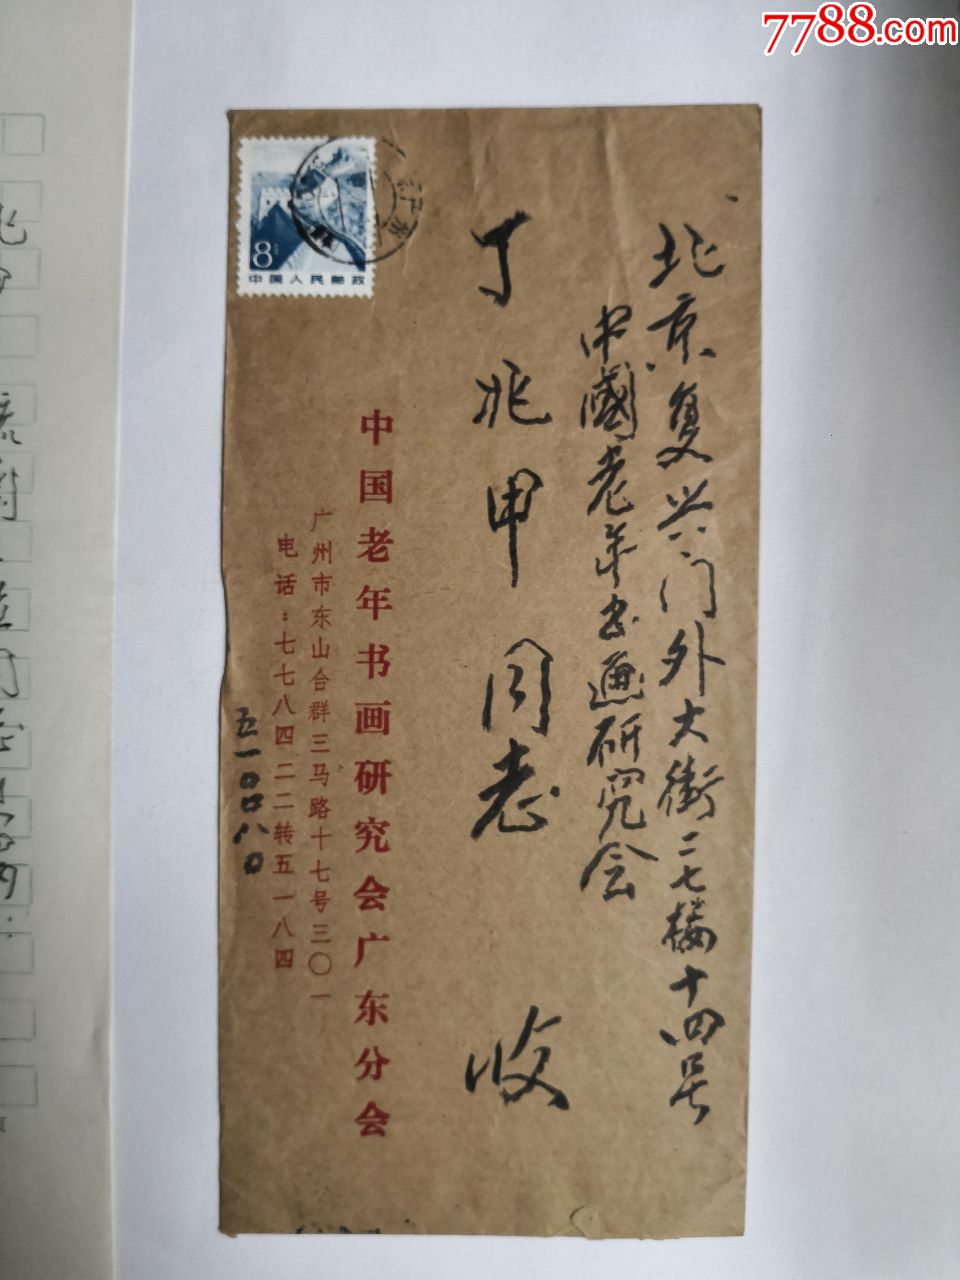 7788.com
北京复兴门外大街二七楼十四号
中國老年书画研究会
丁兆甲同志 收
中国老年书画研究会广东分会
广州市东山合群三马路十七号三〇一
电话:七七八四二二转五一八四
五一〇〇八〇
8
中国人民邮政
广州